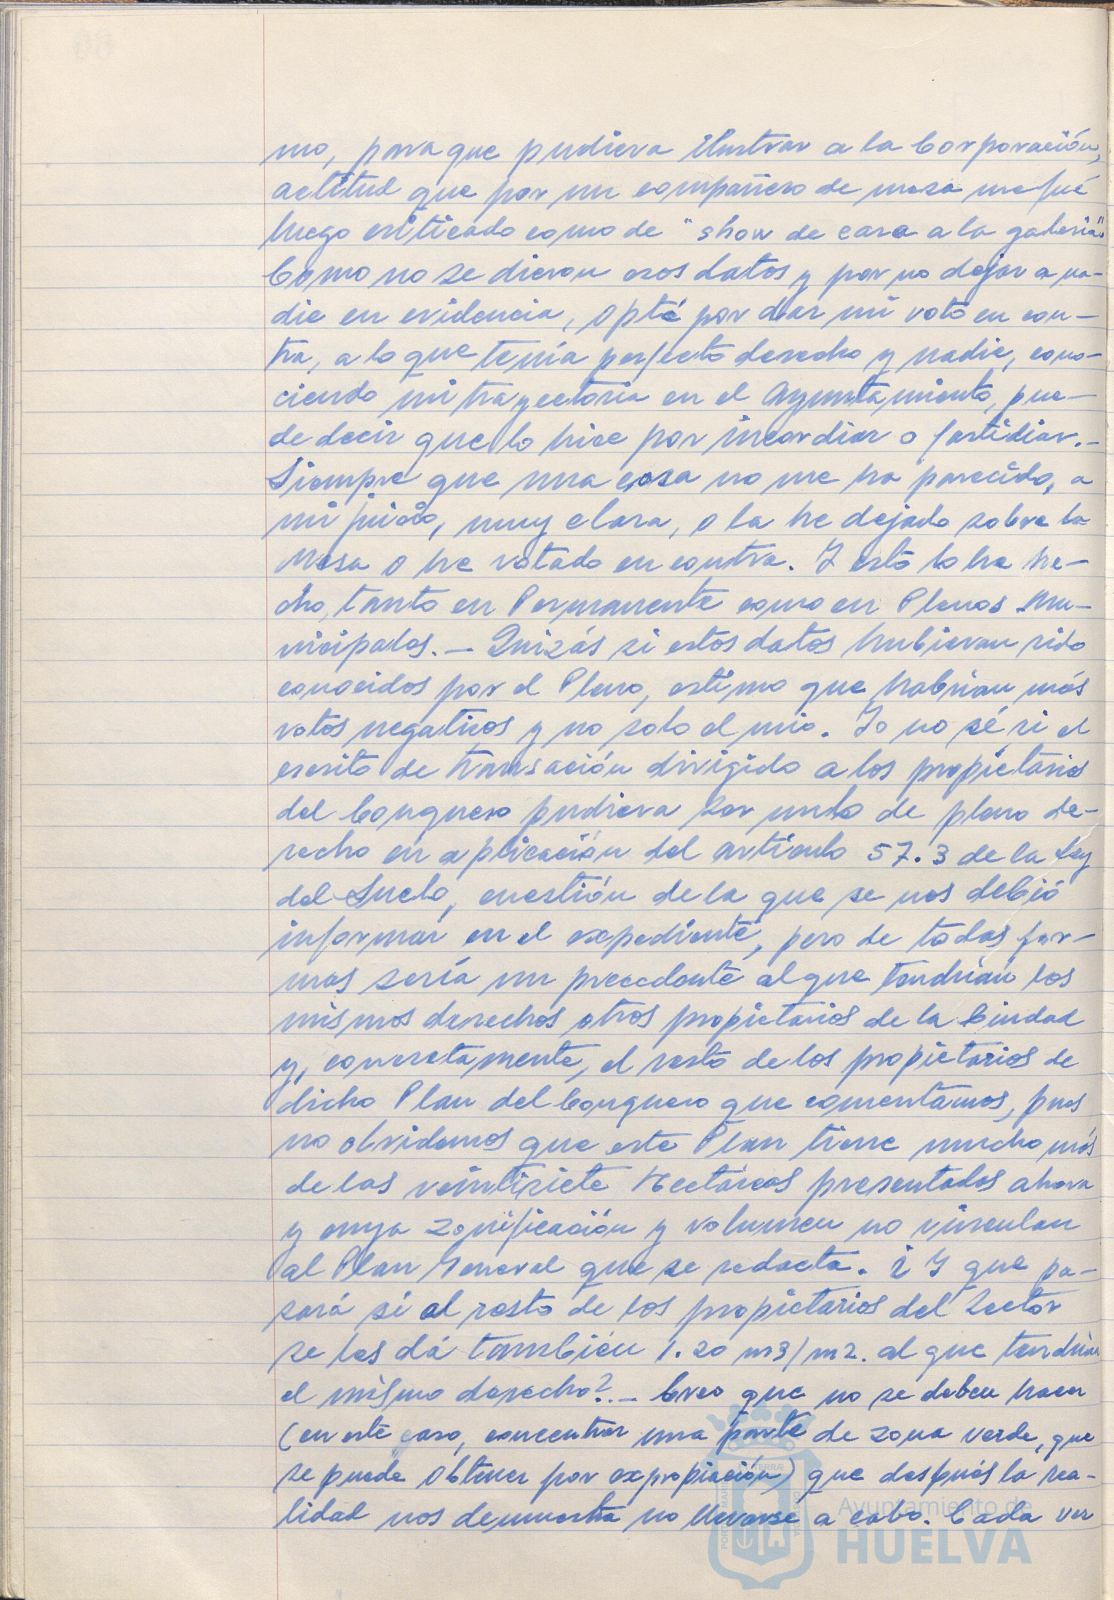 mo, para que pudiera ilustrar a la Corporación,
actitud que por un compañero de mesa me fué
luego criticado como de "show de cara a la galeria".
Como no se dieron esos datos y por no dejar a na-
die en evidencia, opté por dar mi voto en con-
tra, a lo que tenía perfecto derecho y nadie, cono-
ciendo mi trayectoria en el Ayuntamiento, pue-
de decir que lo hice por incordiar o fastidiar.-
Siempre que una cosa no me ha parecido, a
mi juicio, muy clara, o la he dejado sobre la
Mesa o he votado en contra. Y esto lo he he-
cho, tanto en Permanente como en Plenos Mu-
nicipales.- Quizás si estos datos hubieran sido
conocidos por el Pleno, estimo que habrian más
votos negativos y no solo el mio. Yo no sé si el
escrito de transación dirigido a los propietarios
del Conquero pudiera ser nulo de pleno de-
recho en aplicación del artículo 57.3 de la Ley
del Suelo, cuestión de la que se nos debió
informar en el expediente, pero de todas for-
mas sería un precedente al que tendrían los
mismos derechos otros propietarios de la Ciudad
y, concretamente, el resto de los propietarios de
dicho Plan del Conquero que comentamos, pues
no olvidemos que este Plan tiene mucho más
de las veintisiete Hectáreas presentadas ahora
y cuya zonificación y volumen no vinculan
al Plan General que se redacta. ¿Y que pa-
sará si al resto de los propietarios del Sector
se les dá también 1.20 m3/m2. al que tendrían
el mismo derecho?.- Creo que no se deben hacer
(en este caso, concentrar una parte de zona verde, que
se puede obtener por expropiación) que después la rea-
lidad nos demuestra no llevarse a cabo. Cada vez
Ayuntamiento de
HUELVA